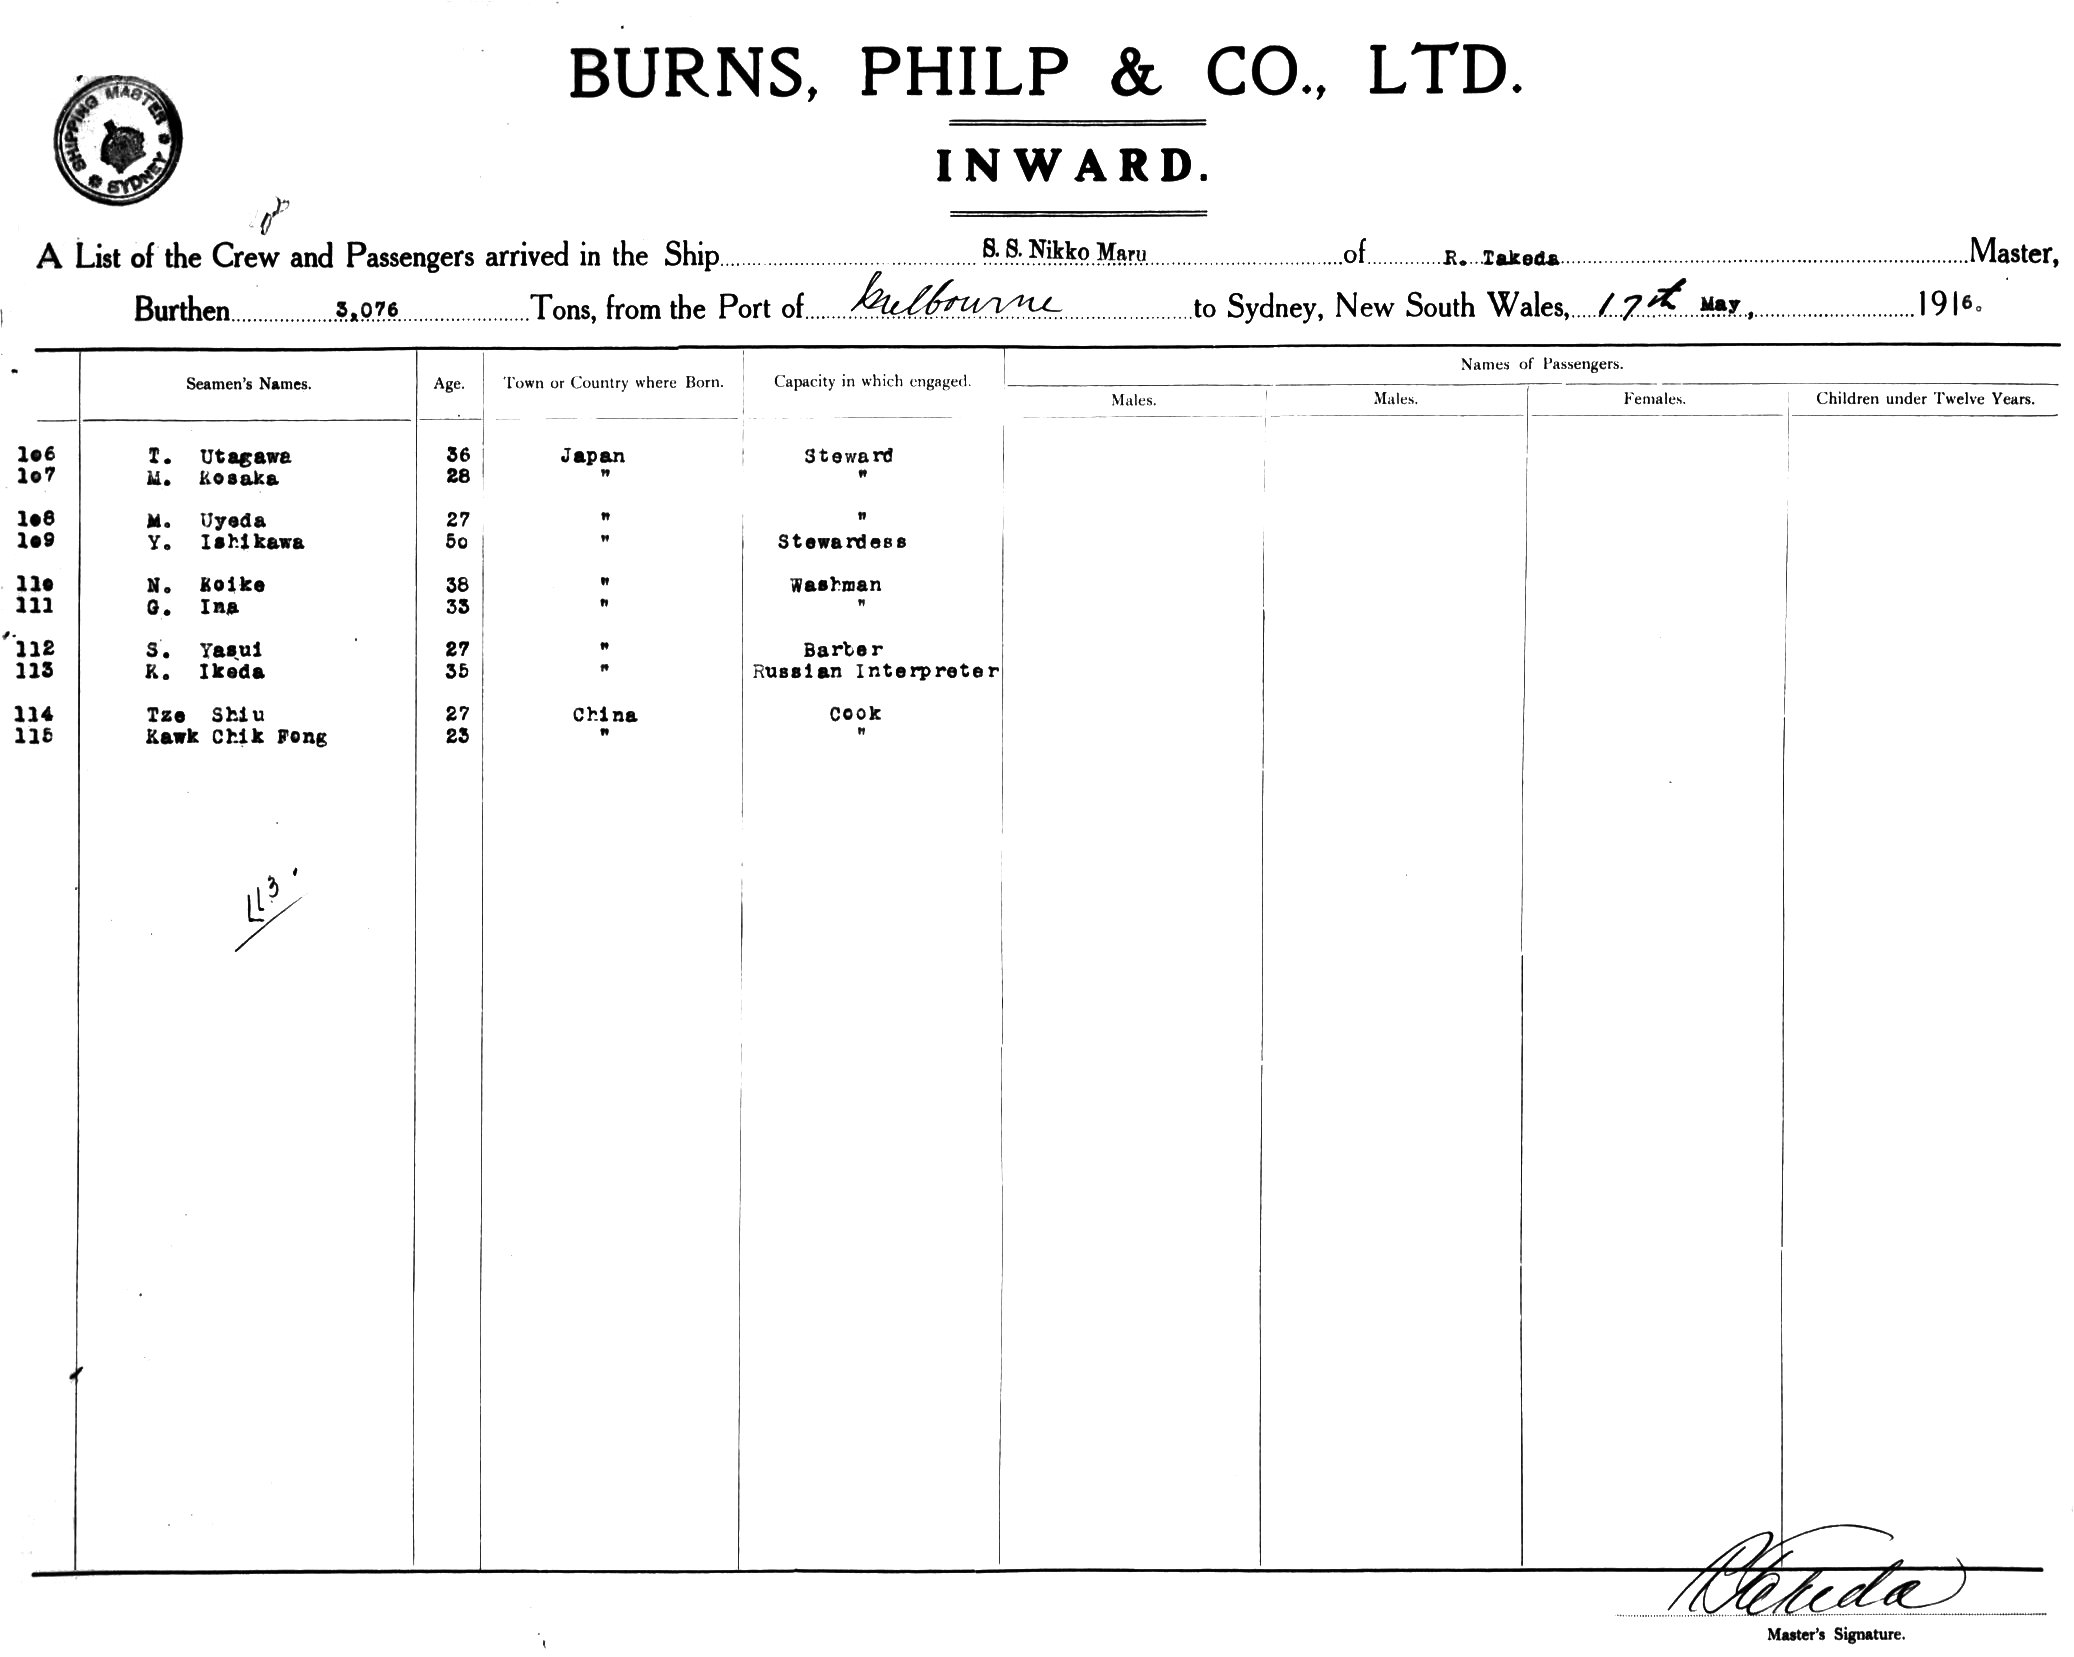 BURNS, PHILP & CO., LTD.
INWARD.
SHIPPING MASTER SYDNEY
A List of the Crew and Passengers arrived in the Ship S. S. Nikko Maru of R. Takeda Master,
Burthen 3,076 Tons, from the Port of Melbourne to Sydney, New South Wales, 17th May, 1916.
Seamen's Names. Age. Town or Country where Born. Capacity in which engaged. Names of Passengers.
Males. Males. Females. Children under Twelve Years.
106 T. Utagawa 36 Japan Steward
107 M. Kosaka 28 " "
108 M. Uyeda 27 " "
109 Y. Ishikawa 50 " Stewardess
110 N. Koike 38 " Washman
111 G. Ina 33 " "
112 S. Yasui 27 " Barber
113 K. Ikeda 35 " Russian Interpreter
114 Tze Shiu 27 China Cook
115 Kawk Chik Fong 23 " "
113
R Takeda
Master's Signature.